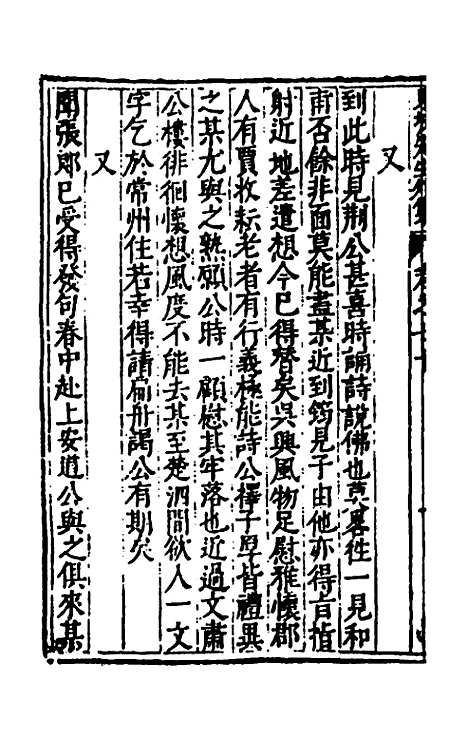 又
到此時見荊公甚喜時誦詩說佛也莫畧徃一見和
甫否餘非面莫能盡某近到筠見子由他亦得旨指
射近地差遣想今已得替矣吳興風物足慰雅懷郡
人有賈收耘老者有行義極能詩公擇子厚皆禮異
之某尤與之熟願公時一顧慰其牢落也近過文肅
公樓徘徊懷想風度不能去某至楚泗間欲入一文
字乞於常州住若幸得請扁舟謁公有期矣
又
聞張郎已受得發句春中赴上安道公與之俱來某